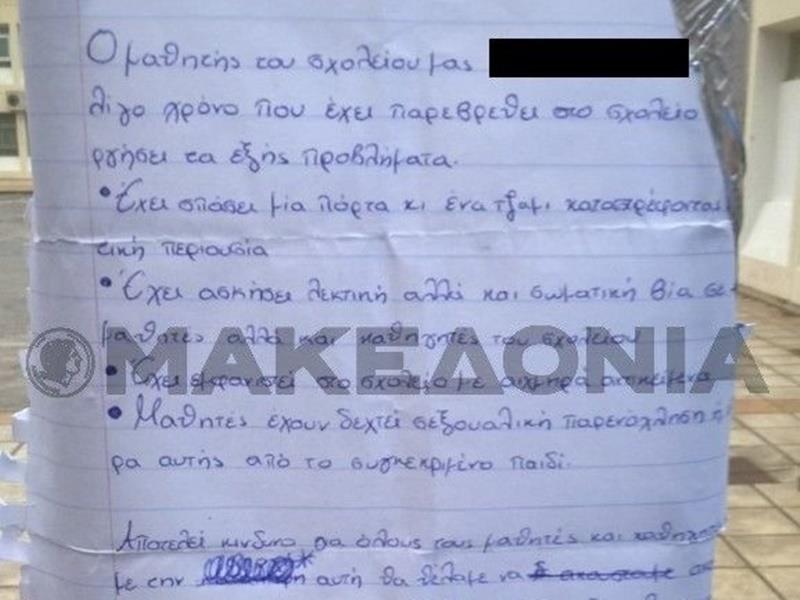 Ο μαθητής του σχολείου μας
λίγο χρόνο που έχει παρεβρεθει στο σχολείο
ργήσει τα εξής προβλήματα.
• Έχει σπάσει μία πόρτα κι ένα τζαμι καταστρέφοντας
τική περιουσία
• Έχει ασκήσει λεκτική αλλά και σωματική βία σε
μαθητές αλλά και καθηγητές του σχολείου
ΜΑΚΕΔΟΝΙΑ
• Έχει εμφανιστεί στο σχολείο με αιχμηρά αντικείμενα
• Μαθητές έχουν δεχτεί σεξουαλική παρενόχληση π
ρα αυτής από το συγκεκριμένο παιδί.
Αποτελεί κινδυνο για όλους τους μαθητές και καθηγη
με την αυτή θα θέλαμε να